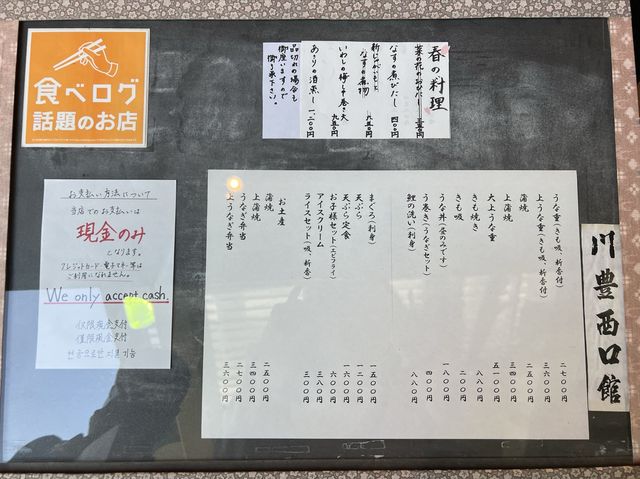 食べログ
話題のお店
春の料理
菜の花のおひたし
なすの煮びたし 四〇〇円
新じゃがいもと
なすの煮物 六五〇円
いわしの梅しそ巻き天 九五〇円
あさりの酒蒸し 一二〇〇円
品切れの場合も
御座いますので
御了承下さい。
川豊西口館
うな重(きも吸、新香付) 二七〇〇円
上うな重(きも吸、新香付) 三六〇〇円
蒲焼 二五〇〇円
上蒲焼 三四〇〇円
大上うな重 五一〇〇円
きも焼き 八八〇円
きも吸 二〇〇円
うな丼(昼のみです) 一八〇〇円
う巻き(うなぎセット) 四〇〇円
鯉の洗い(刺身) 八八〇円
まぐろ(刺身) 一五〇〇円
天ぷら 一二〇〇円
天ぷら定食 一六〇〇円
お子様セット(エビフライ) 六〇〇円
アイスクリーム 三八〇円
ライスセット(吸、新香) 三〇〇円
お土産
蒲焼 二五〇〇円
上蒲焼 三四〇〇円
うなぎ弁当 二七〇〇円
上うなぎ弁当 三六〇〇円
お支払い方法について
当店でのお支払いは
現金のみ
となります。
クレジットカード・電子マネー等は
ご利用になれません。
We only accept cash.
仅限现金支付
僅限現金支付
현금으로만 지불 가능